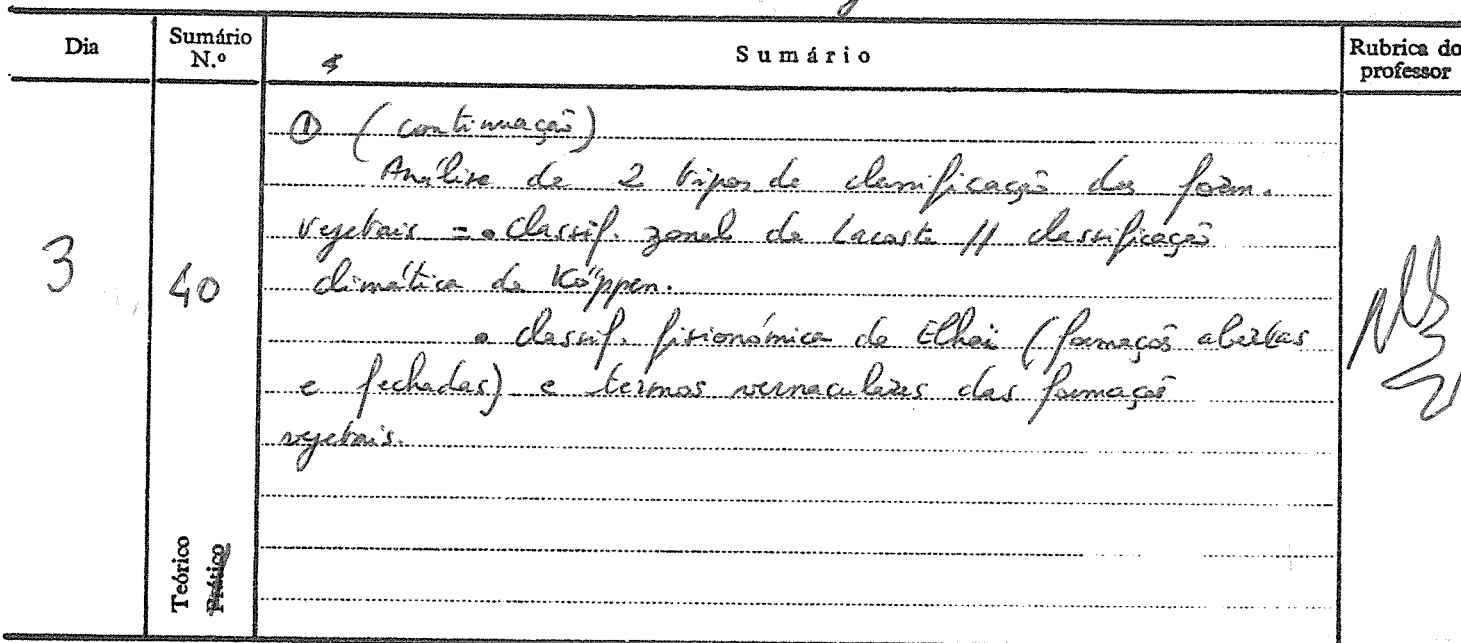 Dia Sumário N.º Sumário Rubrica do professor
① (continuação)
Análise de 2 tipos de classificação das form.
vegetais = • Classif. zonal de Lacoste // classificação
climática de Köppen.
3 40
• classif. fisionómica de Ellhaï (formações abertas
e fechadas) e termos vernaculares das formações
vegetais.
Teórico
Prático